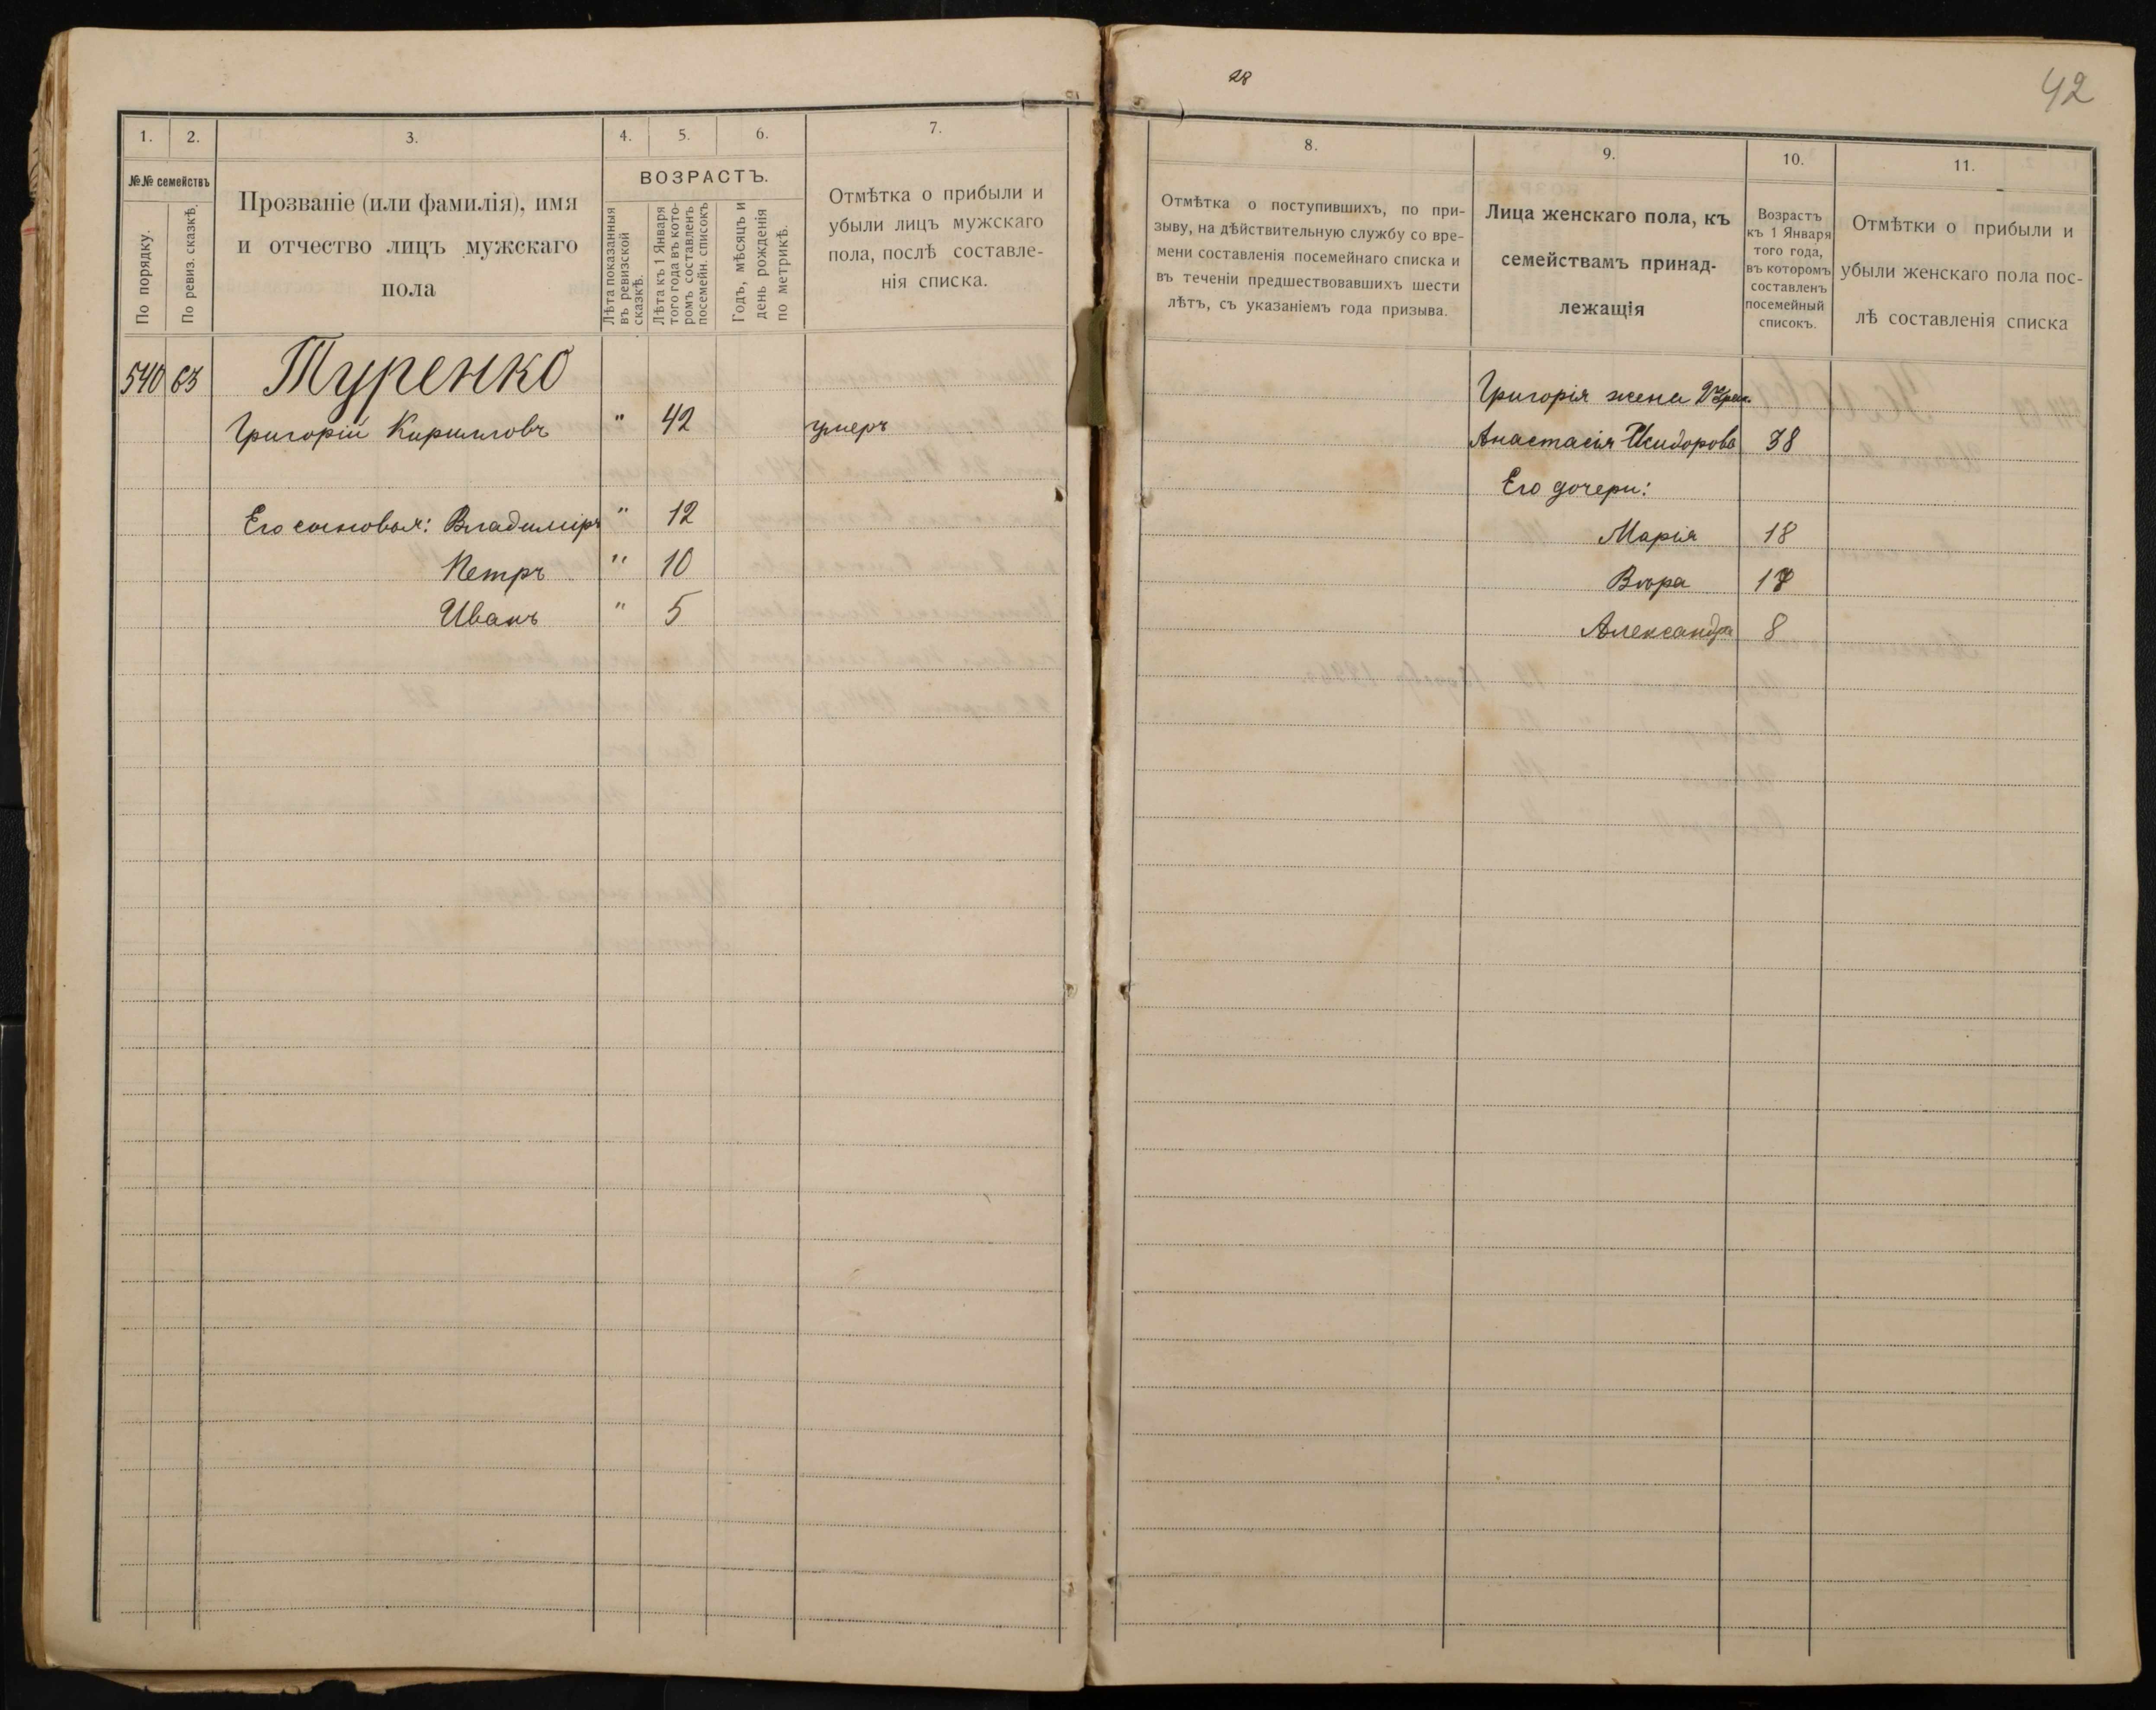 28
42
1.
2.
3.
4.
5.
6.
7.
№№ семействъ
По порядку.
По ревиз. сказкѣ.
Прозваніе (или фамилія), имя
и отчество лицъ мужскаго
пола
ВОЗРАСТЪ.
Лѣта показанныя
въ ревизской
сказкѣ.
Лѣта къ 1 Января
того года въ кото-
ромъ составленъ
посемейн. списокъ
Годъ, мѣсяцъ и
день рожденія
по метрикѣ.
Отмѣтка о прибыли и
убыли лицъ мужскаго
пола, послѣ составле-
нія списка.
540 63 Туренко
Григорій Кирилловъ " 42 умеръ
Его сыновья: Владиміръ " 12
Петръ " 10
Иванъ " 5
8.
9.
10.
11.
Отмѣтка о поступившихъ, по при-
зыву, на дѣйствительную службу со вре-
мени составленія посемейнаго списка и
въ теченіи предшествовавшихъ шести
лѣтъ, съ указаніемъ года призыва.
Лица женскаго пола, къ
семействамъ принад-
лежащія
Возрастъ
къ 1 Января
того года,
въ которомъ
составленъ
посемейный
списокъ.
Отмѣтки о прибыли и
убыли женскаго пола пос-
лѣ составленія списка
Григорія жена
Анастасія Исидорова 38
Его дочери:
Марія 18
Вѣра
Александра 8